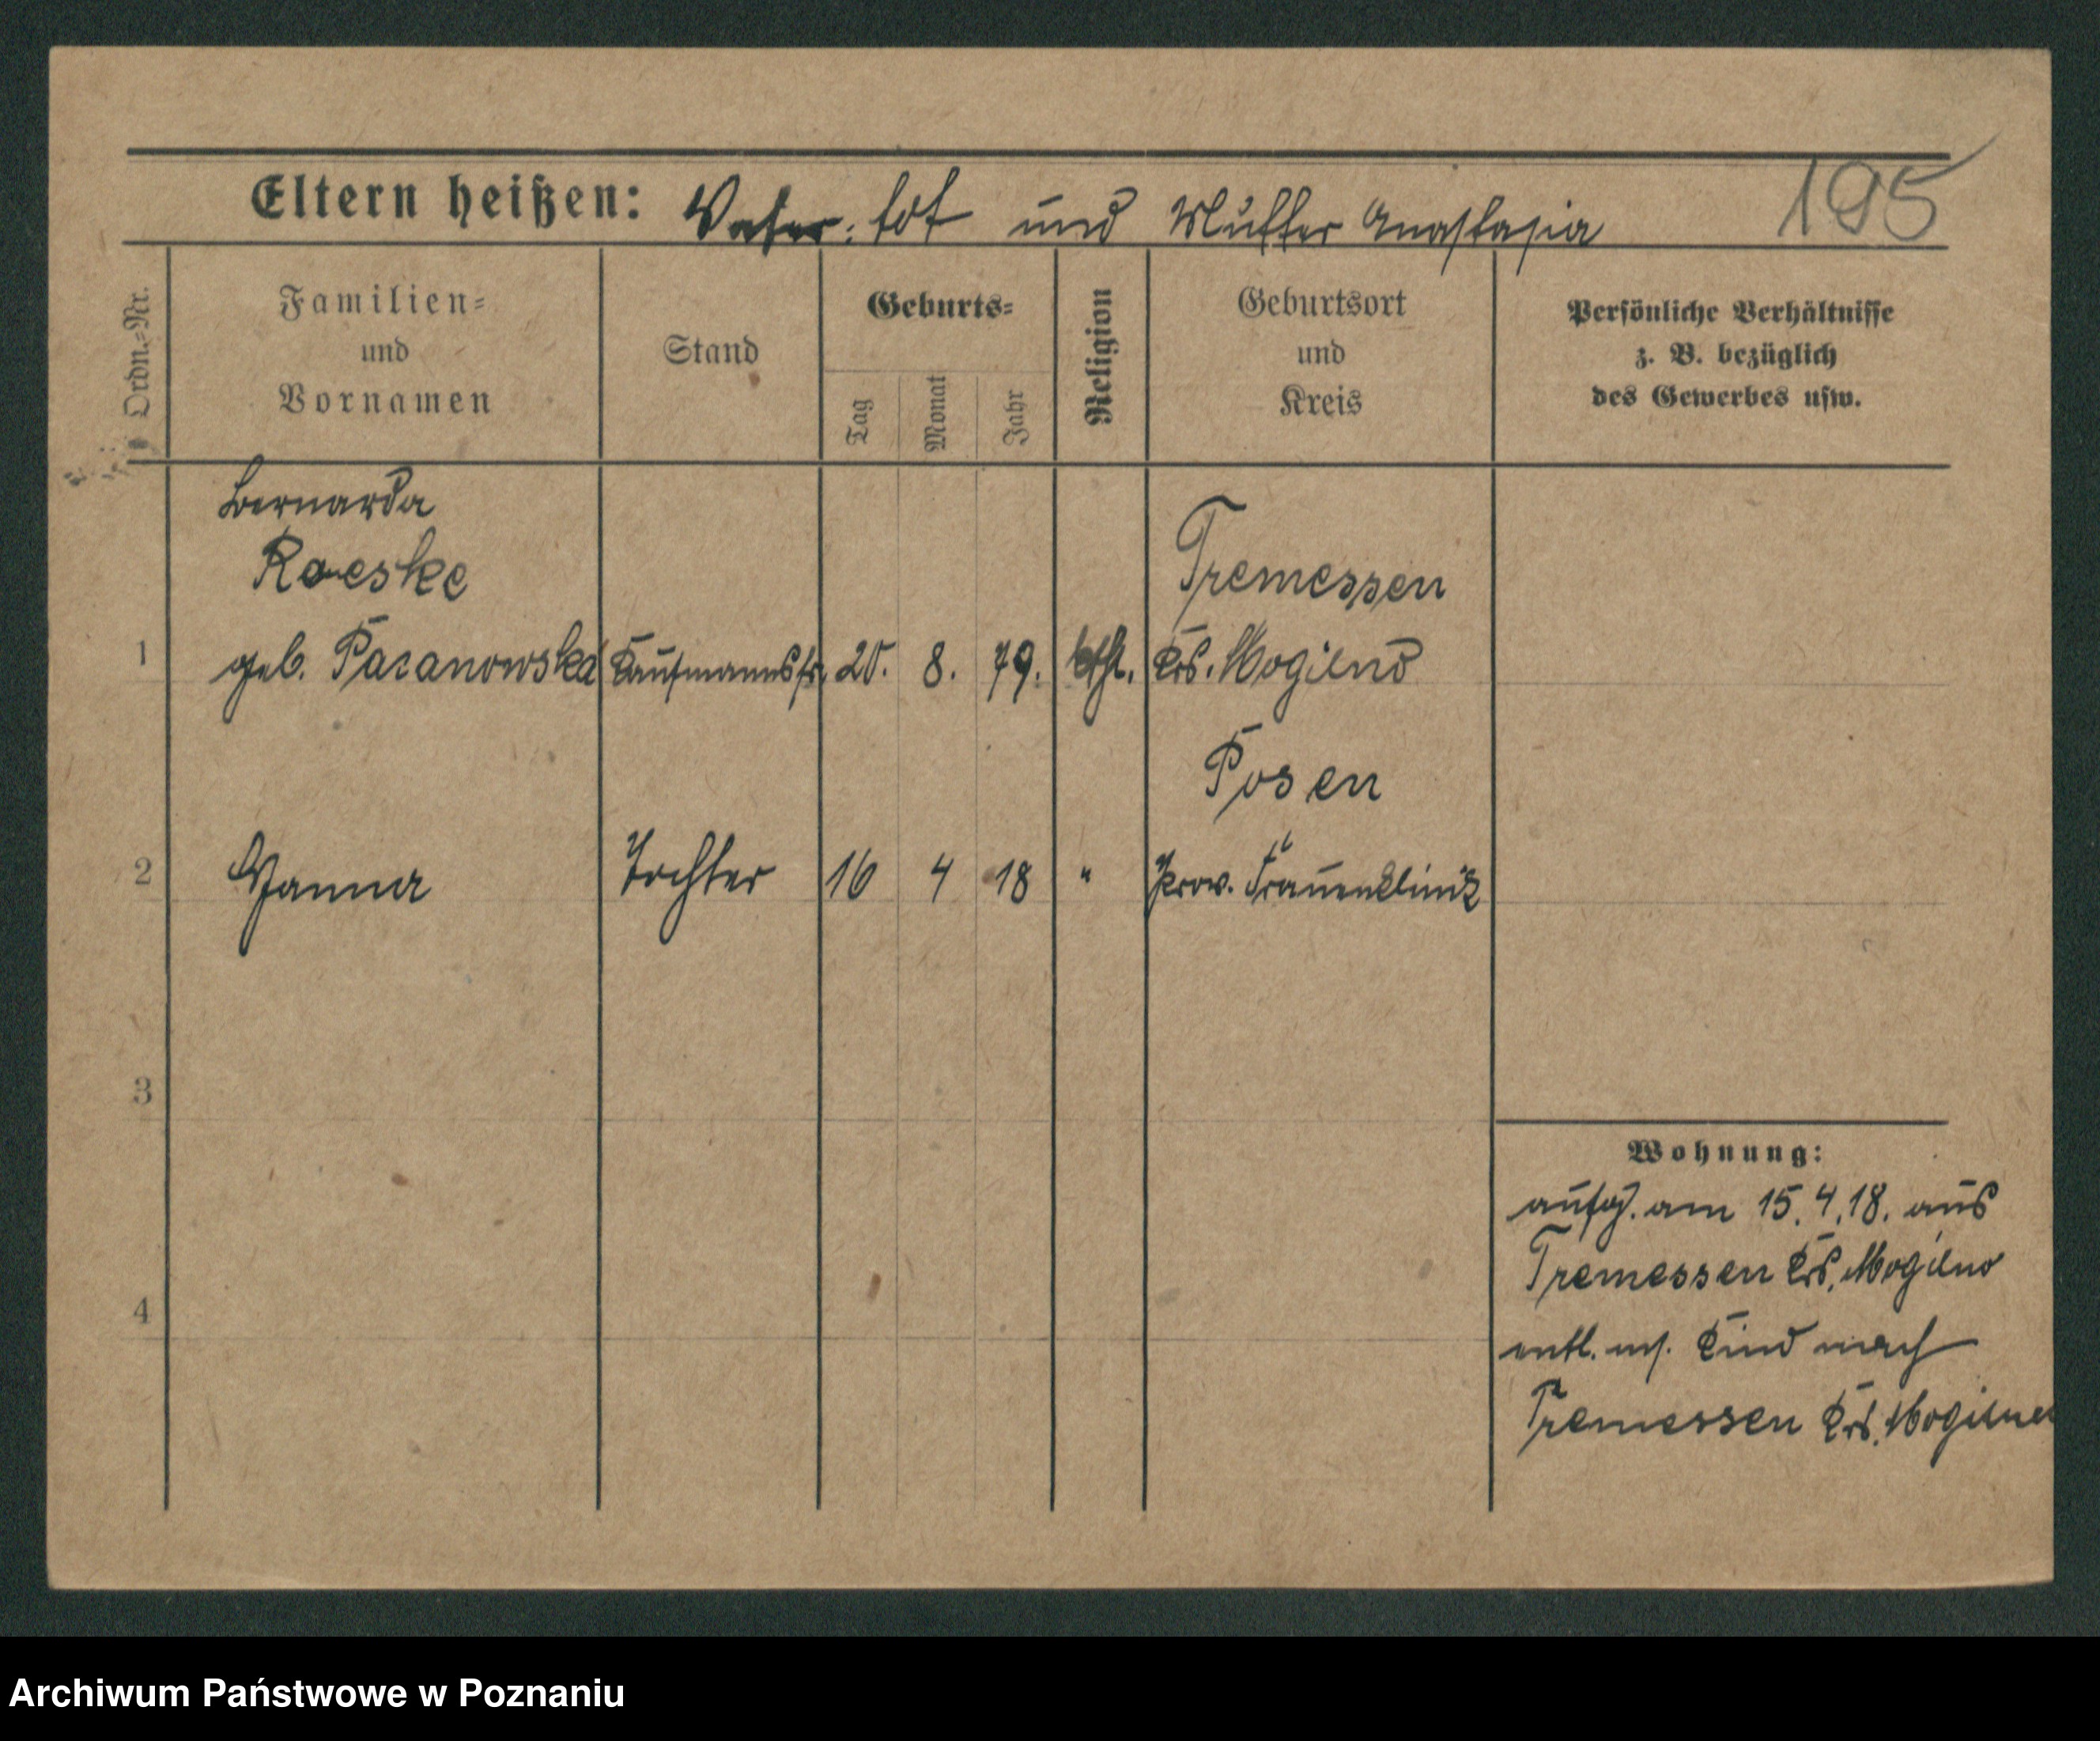 195
Eltern heißen: Vater: tot und Mutter Anastasia
Ordn.-Nr.
Familien-
und
Vornamen
Stand
Geburts-
Tag
Monat
Jahr
Religion
Geburtsort
und
Kreis
Persönliche Verhältnisse
z. B. bezüglich
des Gewerbes usw.
Bernarda
Raeske
Tremessen
1 geb. Pazanowska Kaufmannsfr. 20. 8. 79. kth. Krs. Mogilno
Posen
2 Tochter 16 4 18 " Prov. Frauenklinik
3
4
Wohnung:
aufg. am 15.4.18. aus
Tremessen Krs. Mogilno
entl. m. Kind nach
Tremessen Krs. Mogilno
Archiwum Państwowe w Poznaniu